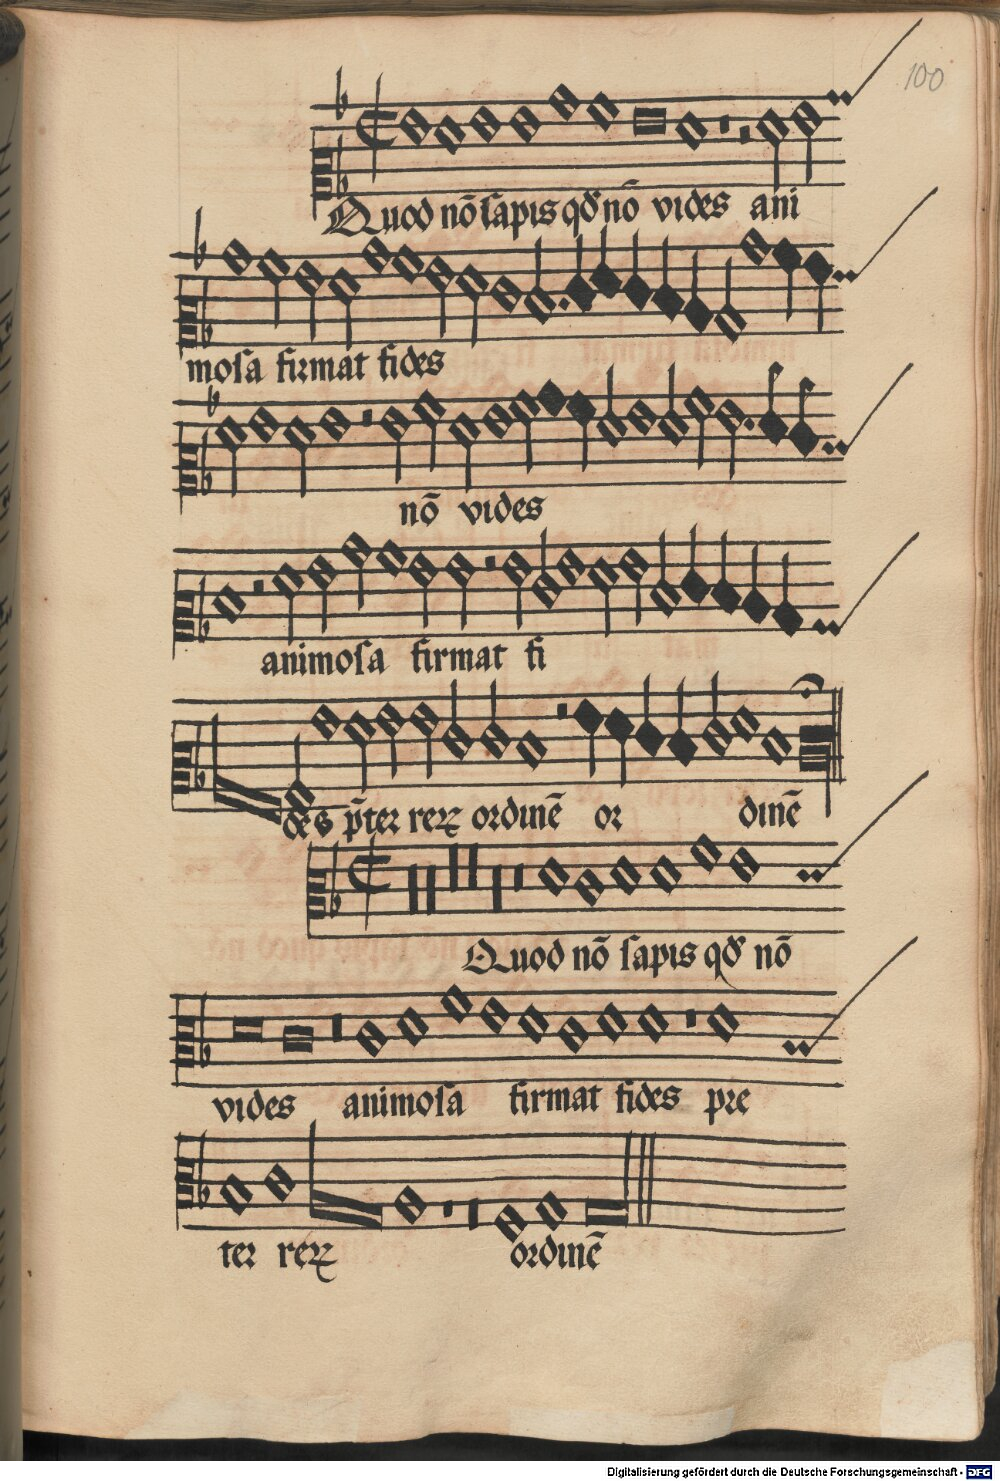 100
Quod nō sapis qđ nō vides ani
mosa firmat fides
nō vides
animosa firmat fi
des p̄ter rerꝝ ordinē or dinē
Quod nō sapis qđ nō
vides animosa firmat fides pre
ter rerꝝ ordinē
Digitalisierung gefördert durch die Deutsche Forschungsgemeinschaft - DFG